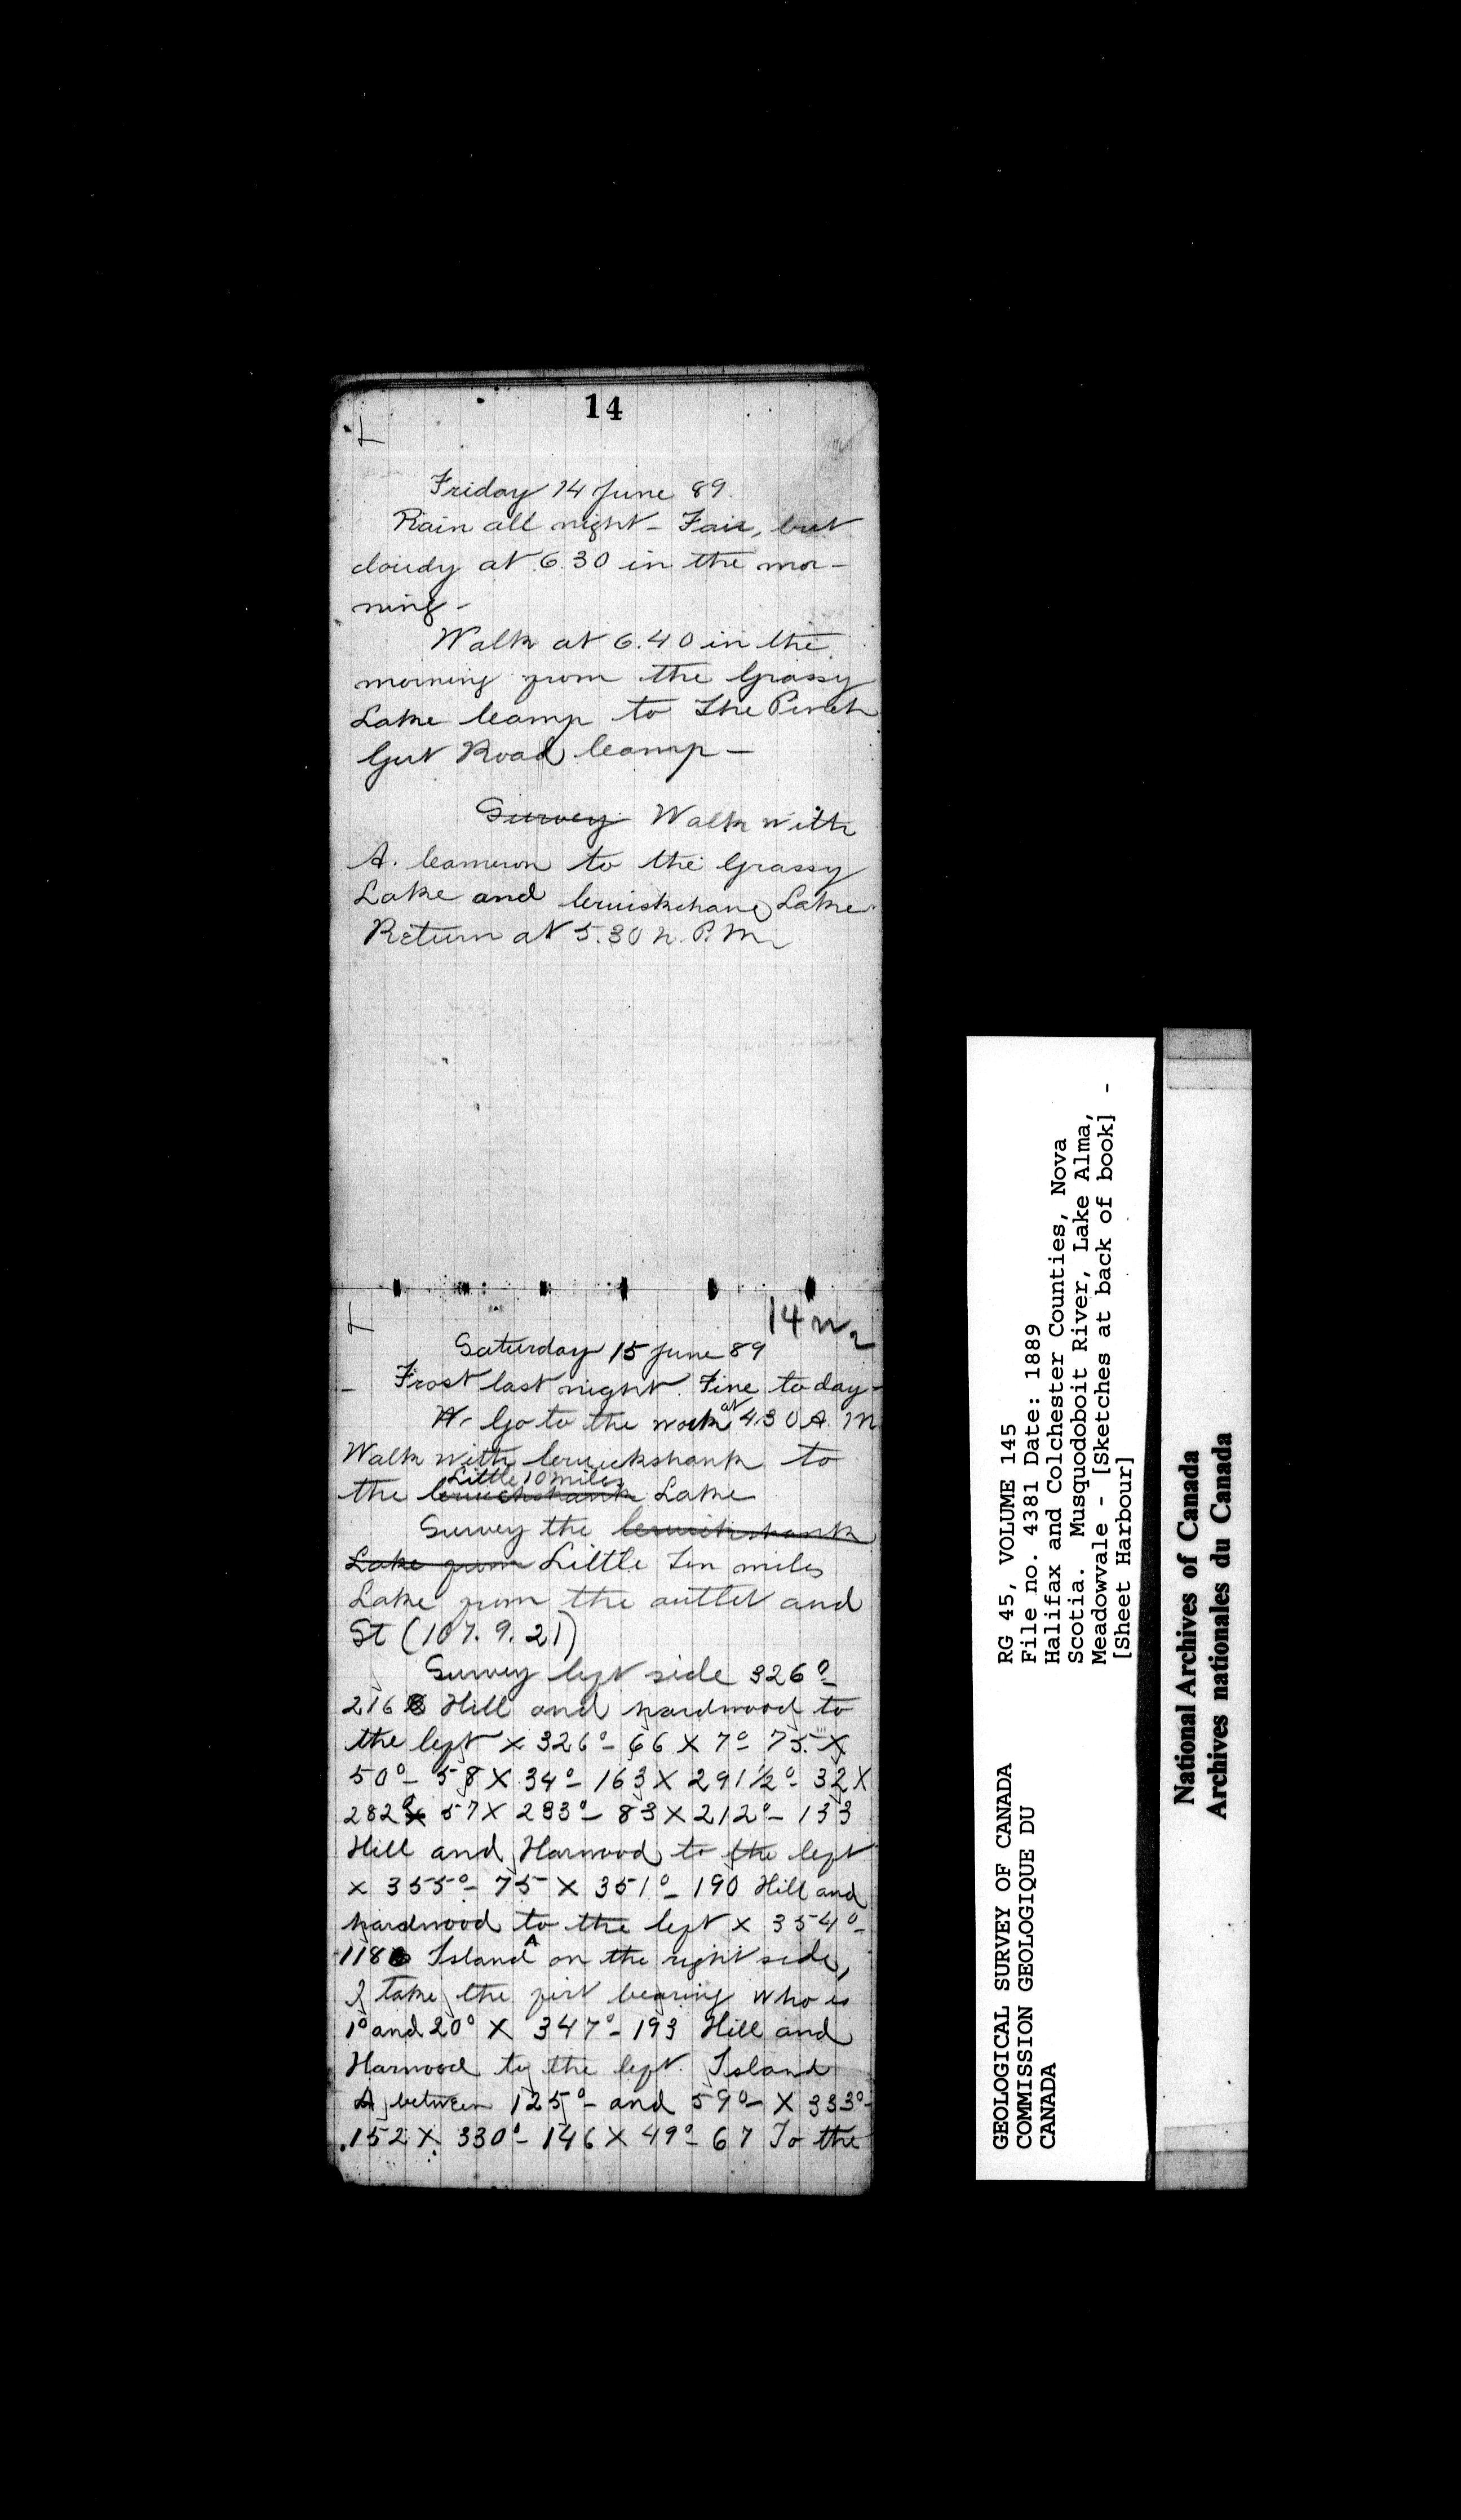 14
Friday 14 June 89.
Rain all night - Fair, but
cloudy at 6.30 in the mor-
ning -
Walk at 6.40 in the
morning from the Grassy
Lake Camp to The Pinch
Gut Road Camp -
Survey Walk with
A. Cameron to the Grassy
Lake and Cruiskchanc Lake
Return at 5.30 h. P.M.
14
Saturday 15 June 89
- Frost last night. Fine to day -
W- Go to the work at 4.30 A. M
Walk with Cruickshank to
Little 10 miles
the Cruickshank Lake
Survey the Cruickshank
Lake from Little Ten miles
Lake from the outlet and
St (107. 9. 21)
Survey left side 326°-
216 Hill and hardwood to
the left x 326°- 66 X 7°- 75 X
50°- 58 X 34°- 163 X 291½°- 32 X
282°- 57 X 233°- 83 X 212°- 133
Hill and Harwood to the left
x 355°- 75 X 351°- 190 Hill and
hardwood to the left x 354°-
118 Island A on the right side,
I take the firt bearing who is
1° and 20° X 347°- 193 Hill and
Harwood to the left. Island
A between 125°- and 59°- X 333°-
152 X 330°- 146 X 49°- 67 To the
GEOLOGICAL SURVEY OF CANADA
COMMISSION GEOLOGIQUE DU
CANADA
RG 45, VOLUME 145
File no. 4381 Date: 1889
Halifax and Colchester Counties, Nova
Scotia. Musquodoboit River, Lake Alma,
Meadowvale - [Sketches at back of book] -
[Sheet Harbour]
National Archives of Canada
Archives nationales du Canada